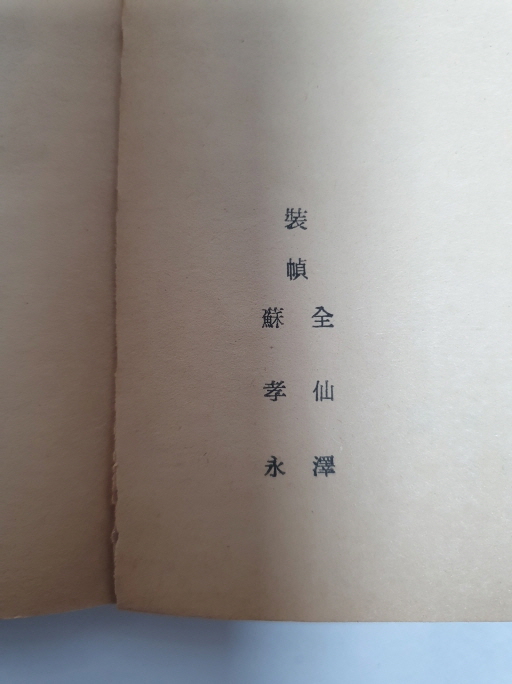 裝幀
全仙澤
蘇孝永